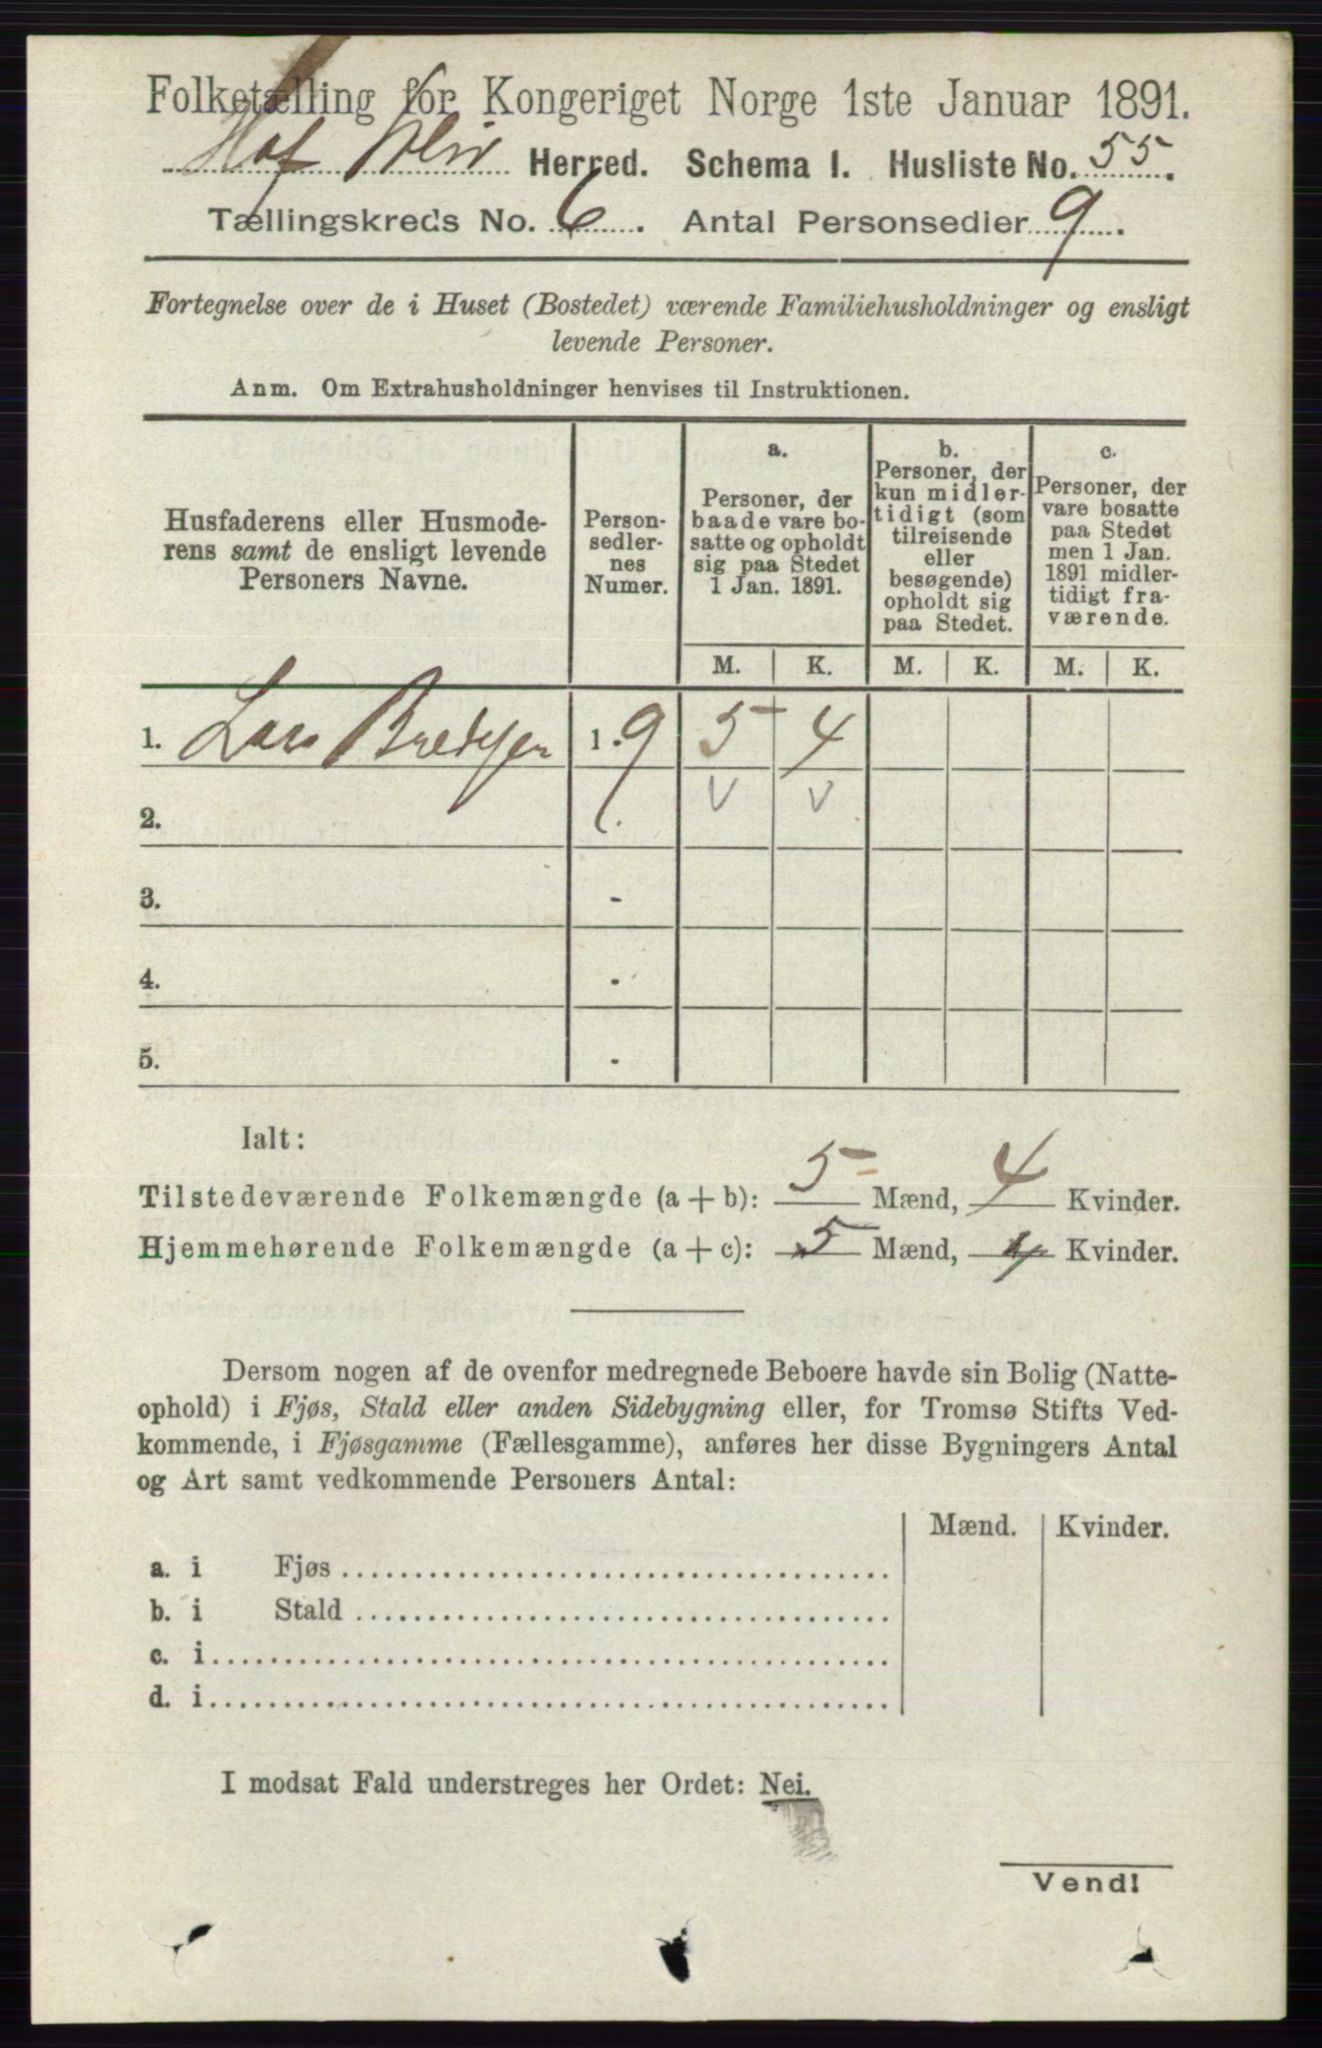 Folketælling for Kongeriget Norge 1ste Januar 1891.
Hof Herred. Schema I. Husliste No. 55.
Tællingskreds No. 6. Antal Personsedler 9.
Fortegnelse over de i Huset (Bostedet) værende Familiehusholdninger og ensligt
levende Personer.
Anm. Om Extrahusholdninger henvises til Instruktionen.
Husfaderens eller Husmode-
rens samt de ensligt levende
Personers Navne.
Person-
sedler-
nes
Numer.
a.
Personer, der
baade vare bo-
satte og opholdt
sig paa Stedet
1 Jan. 1891.
b.
Personer, der
kun midler-
tidigt (som
tilreisende
eller
besøgende)
opholdt sig
paa Stedet.
c.
Personer, der
vare bosatte
paa Stedet
men 1 Jan.
1891 midler-
tidigt fra-
værende.
M. K. M. K. M. K.
1. Lars 1.9 5 4
2. v v
3. -
4. -
5. -
Ialt:
Tilstedeværende Folkemængde (a + b): 5 Mænd, 4 Kvinder.
Hjemmehørende Folkemængde (a + c): 5 Mænd, 4 Kvinder.
Dersom nogen af de ovenfor medregnede Beboere havde sin Bolig (Natte-
ophold) i Fjøs, Stald eller anden Sidebygning eller, for Tromsø Stifts Ved-
kommende, i Fjøsgamme (Fællesgamme), anføres her disse Bygningers Antal
og Art samt vedkommende Personers Antal:
Mænd. Kvinder.
a. i Fjøs
b. i Stald
c. i
d. i
I modsat Fald understreges her Ordet: Nei.
Vend!